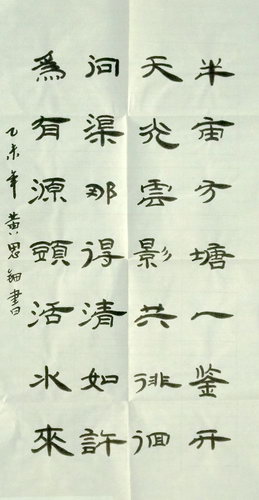 半亩方塘一鉴开
天光雲影共徘徊
问渠那得清如許
為有源頭活水來
乙未年黄思鈿書